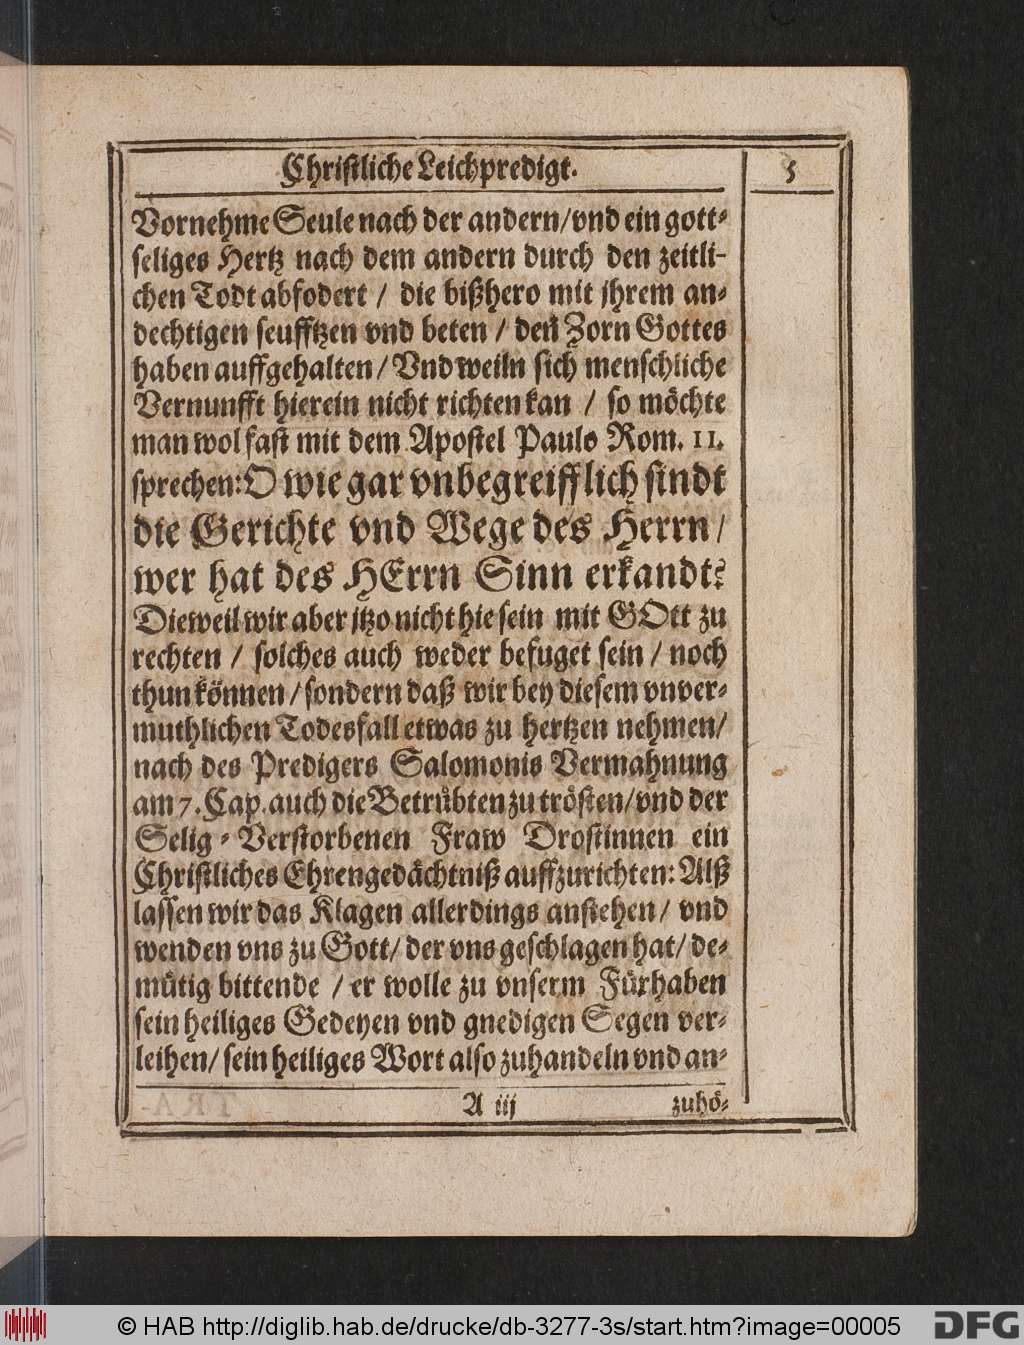 Christliche Leichpredigt. 5
Vornehme Seule nach der andern/vnd ein gott⸗
seliges Hertz nach dem andern durch den zeitli-
chen Todt abfodert / die bißhero mit jhrem an⸗
dechtigen seufftzen vnd beten / den Zorn Gottes
haben auffgehalten/ Vnd weiln sich menschliche
Vernunfft hierein nicht richten kan / so möchte
man wol fast mit dem Apostel Paulo Rom. 11.
sprechen: O wie gar vnbegreifflich sindt
die Gerichte vnd Wege des Herrn/
wer hat des HErrn Sinn erkandt?
Dieweil wir aber jtzo nicht hie sein mit GOtt zu
rechten / solches auch weder befuget sein / noch
thun können / sondern daß wir bey diesem vnver⸗
muthlichen Todesfall etwas zu hertzen nehmen/
nach des Predigers Salomonis Vermahnung
am 7. Cap. auch die Betrübten zu trösten/vnd der
Selig⸗Verstorbenen Fraw Drostinnen ein
Christliches Ehrengedächtniß auffzurichten: Alß
lassen wir das Klagen allerdings anstehen/ vnd
wenden vns zu Gott/ der vns geschlagen hat/ de⸗
mütig bittende / er wolle zu vnserm Fürhaben
sein heiliges Gedeyen vnd gnedigen Segen ver⸗
leihen/ sein heiliges Wort also zuhandeln vnd an⸗
A iij zuhö⸗
© HAB http://diglib.hab.de/drucke/db-3277-3s/start.htm?image=00005 DFG